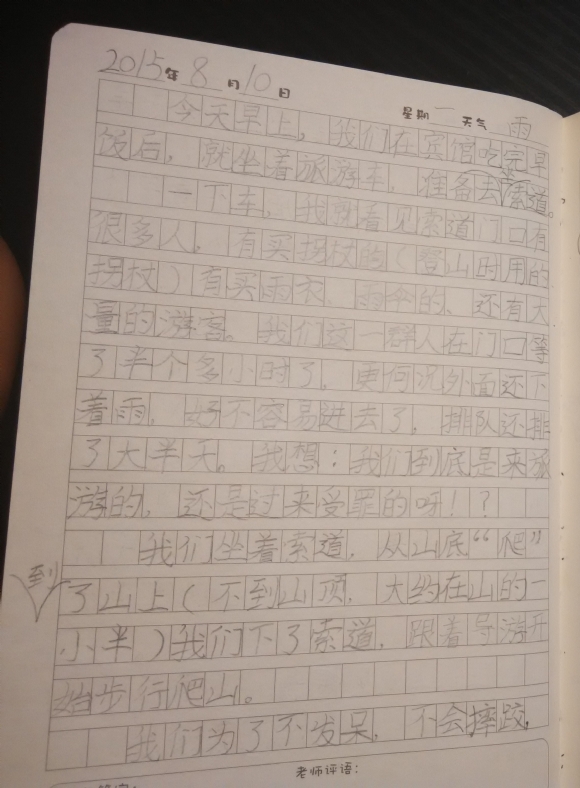 2015年8月10日
星期一 天气 雨
今天早上，我们在宾馆吃完早
饭后，就坐着旅游车，准备去索道。
一下车，我就看见索道门口有
很多人，有买拐杖的（登山时用的
拐杖）有买雨衣、雨伞的、还有大
量的游客。我们这一群人在门口等
了半个多小时了，更何况外面还下
着雨，好不容易进去了，排队还排
了大半天。我想：我们到底是来旅
游的，还是过来受罪的呀！？
我们坐着索道，从山底“爬”
到
了山上（不到山顶，大约在山的一
小半）我们下了索道，跟着导游开
始步行爬山。
我们为了不发呆，不会摔跤，
老师评语：